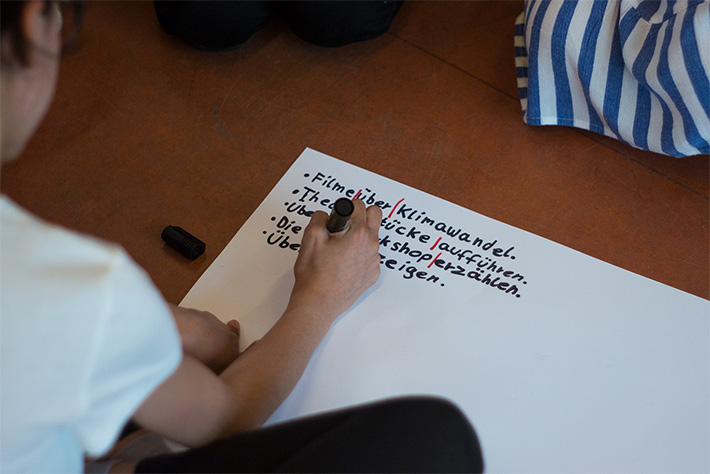 • Filme über Klimawandel.
• Thea ücke aufführen.
• Übe kshop erzählen.
• Die zeigen.
• Übe